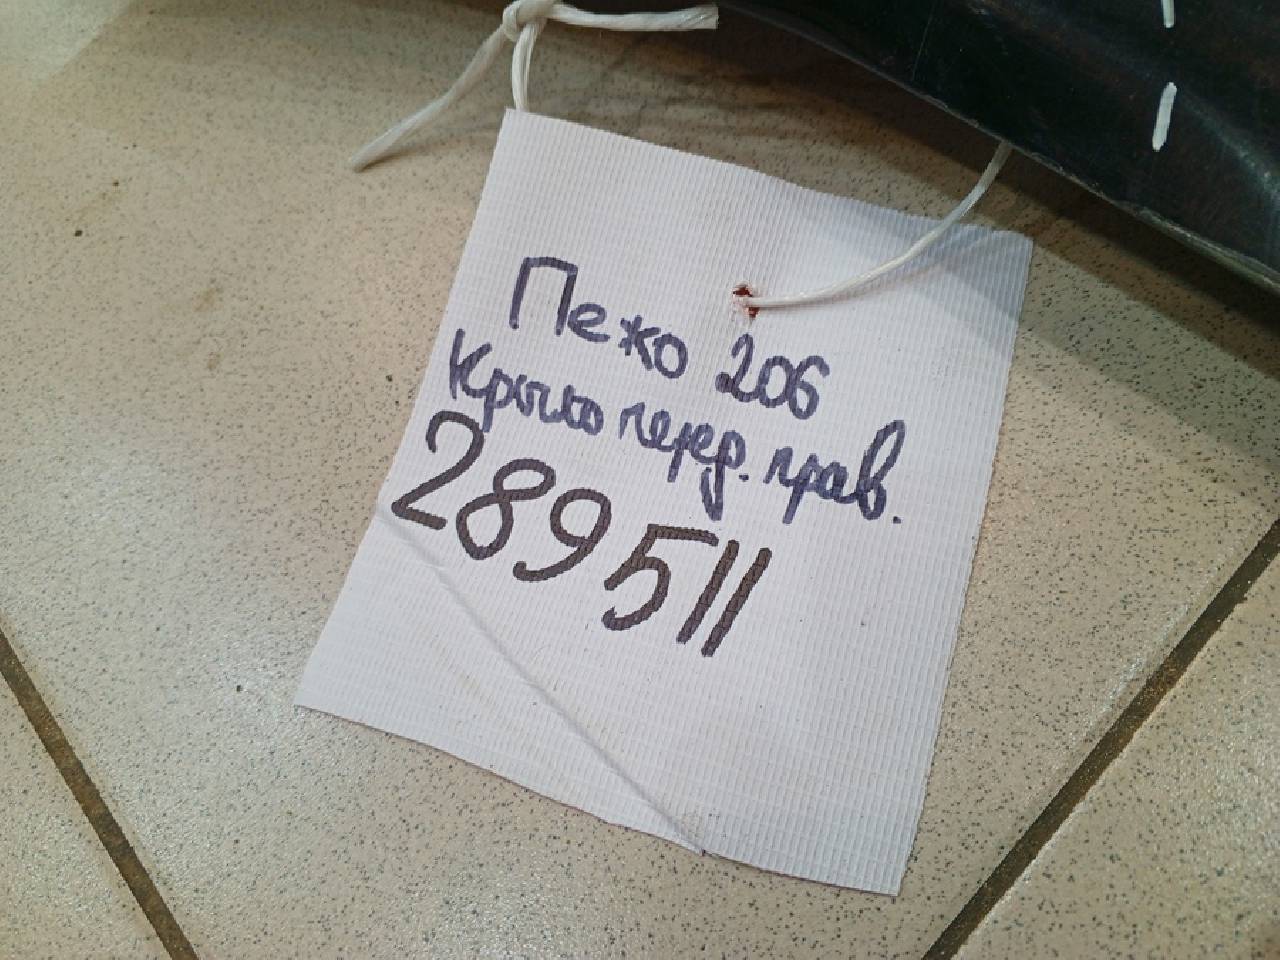 Пежо 206
Крыло перед. прав.
289511